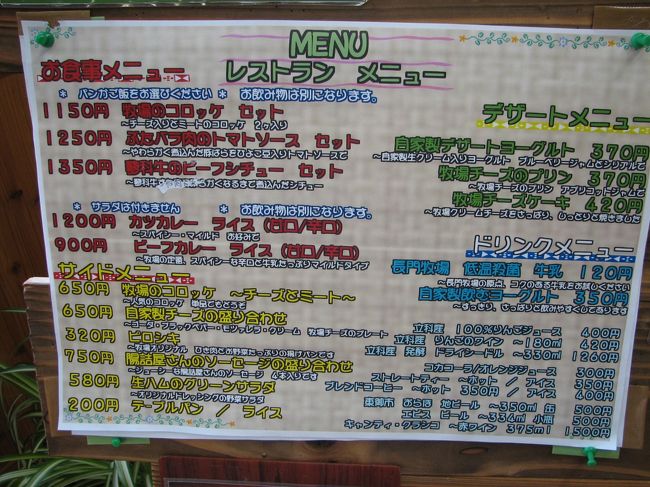 MENU
レストラン メニュー
お食事メニュー
* パンかご飯をお選びください * お飲み物は別になります。
1150円 牧場のコロッケ セット
～チーズ入りとミートのコロッケ 2ヶ入り
1250円 ぶたバラ肉のトマトソース セット
～やわらかく煮込んだ豚ばらをひよこ豆入りトマトソースで
1350円 蓼科牛のビーフシチュー セット
～蓼科牛 らかくなるまで煮込んだシチュー
* サラダは付きません * お飲み物は別になります。
1200円 カツカレー ライス (甘口/辛口)
～スパイシー・マイルド お好みで
900円 ビーフカレー ライス (甘口/辛口)
～牧場の定番、スパイシーな辛口と牛乳たっぷりマイルドタイプ
サイドメニュー
650円 牧場のコロッケ ～チーズとミート～
～人気のコロッケ 単品でもどうぞ
650円 自家製チーズの盛り合わせ
～ゴーダ・ブラックペパー・モッツァレラ・クリーム 牧場チーズのプレート
320円 ピロシキ
～牧場オリジナル ひき肉とお野菜たっぷりの揚げパンです
750円 腸詰屋さんのソーセージの盛り合わせ
～ジューシーな腸詰屋さんのソーセージ 4本入りです
580円 生ハムのグリーンサラダ
～オリジナルドレッシングの野菜サラダ
200円 テーブルパン / ライス
デザートメニュー
自家製デザートヨーグルト 370円
～自家製生クリーム入りヨーグルト ブルーベリージャムとシリアルで
牧場チーズのプリン 370円
～牧場チーズのプリン アプリコットジャムで
牧場チーズケーキ 420円
～牧場クリームチーズをさっぱり、しっとりと焼きました
ドリンクメニュー
長門牧場 低温殺菌 牛乳 120円
～長門牧場の原点、コクのある牛乳をお試しください
自家製飲むヨーグルト 350円
～すっきり、しっぱりと飲みやすくしてあります
立科産 100%りんごジュース 400円
立科産 りんごのワイン ～180ml 420円
立科産 発酵 ドライシードル ～330ml 1260円
コカコーラ/オレンジジュース 300円
ストレートティー ～ホット / アイス 350円
ブレンドコーヒー ～ホット 350円 / アイス 400円
東御市 おらほ 地ビール ～350ml 缶 500円
エビス ビール ～334ml 小瓶 500円
キャンティ・クラシコ ～赤ワイン 375ml 1500円